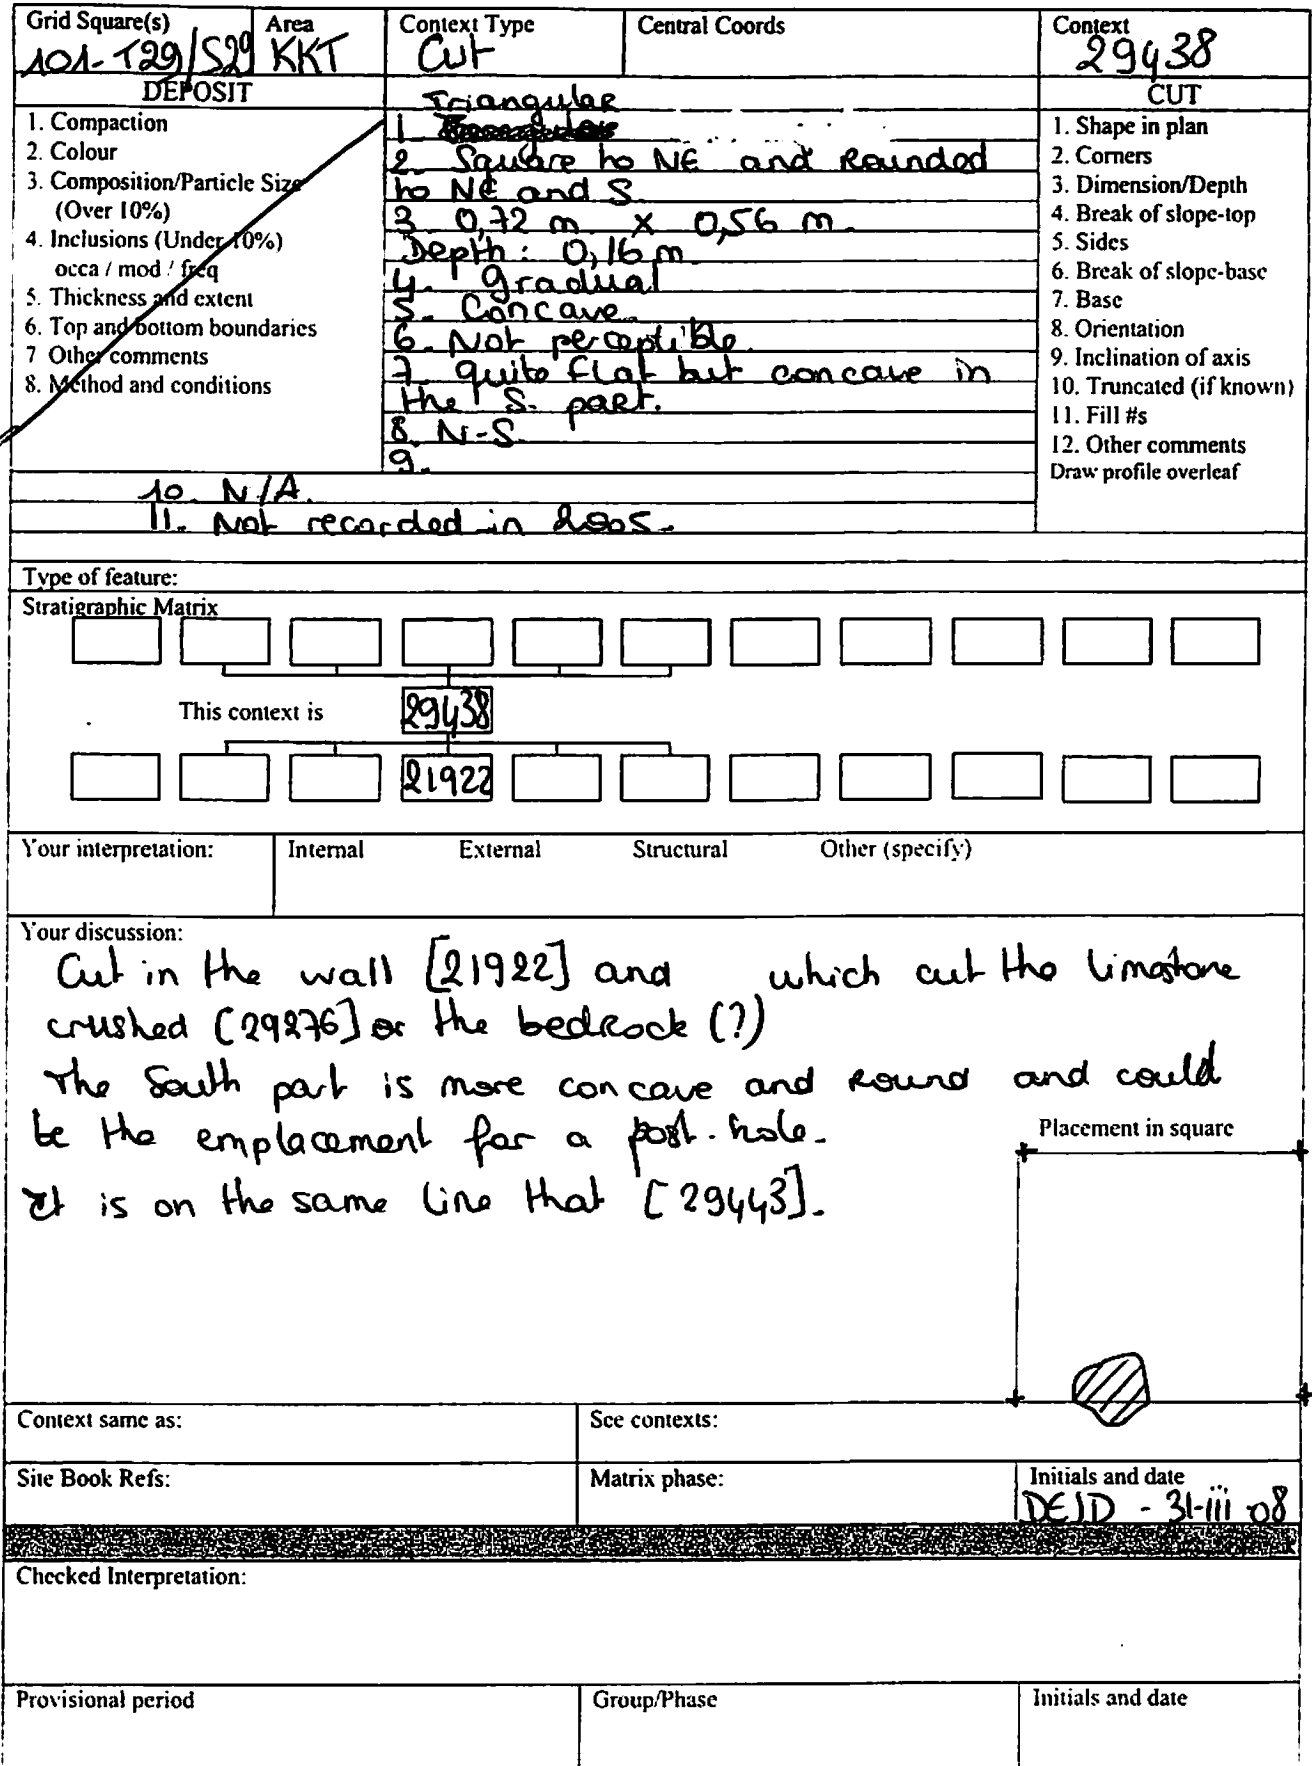 Grid Square(s) Area Context Type Central Coords Context
101-T29/S29 KKT Cut 29438
DEPOSIT CUT
1. Compaction
2. Colour
3. Composition/Particle Size
(Over 10%)
4. Inclusions (Under 10%)
occa / mod / freq
5. Thickness and extent
6. Top and bottom boundaries
7 Other comments
8. Method and conditions
Triangular
1
2. Square to NE and Rounded
to NE and S.
3. 0,72 m. x 0,56 m.
Depth: 0,16 m
4. gradual
5. Concave.
6. Not perceptible.
7. quite flat but concave in
the S. part.
8. N-S.
9.
10. N/A.
11. Not recorded in 2005.
1. Shape in plan
2. Corners
3. Dimension/Depth
4. Break of slope-top
5. Sides
6. Break of slope-base
7. Base
8. Orientation
9. Inclination of axis
10. Truncated (if known)
11. Fill #s
12. Other comments
Draw profile overleaf
Type of feature:
Stratigraphic Matrix
This context is 29438
21922
Your interpretation: Internal External Structural Other (specify)
Your discussion:
Cut in the wall [21922] and which cut the limestone
crushed [29276] or the bedrock (?)
The South part is more concave and round and could
be the emplacement for a post-hole.
It is on the same line that [29443].
Placement in square
Context same as: See contexts:
Site Book Refs: Matrix phase: Initials and date
DEJD - 31-iii 08
Checked Interpretation:
Provisional period Group/Phase Initials and date